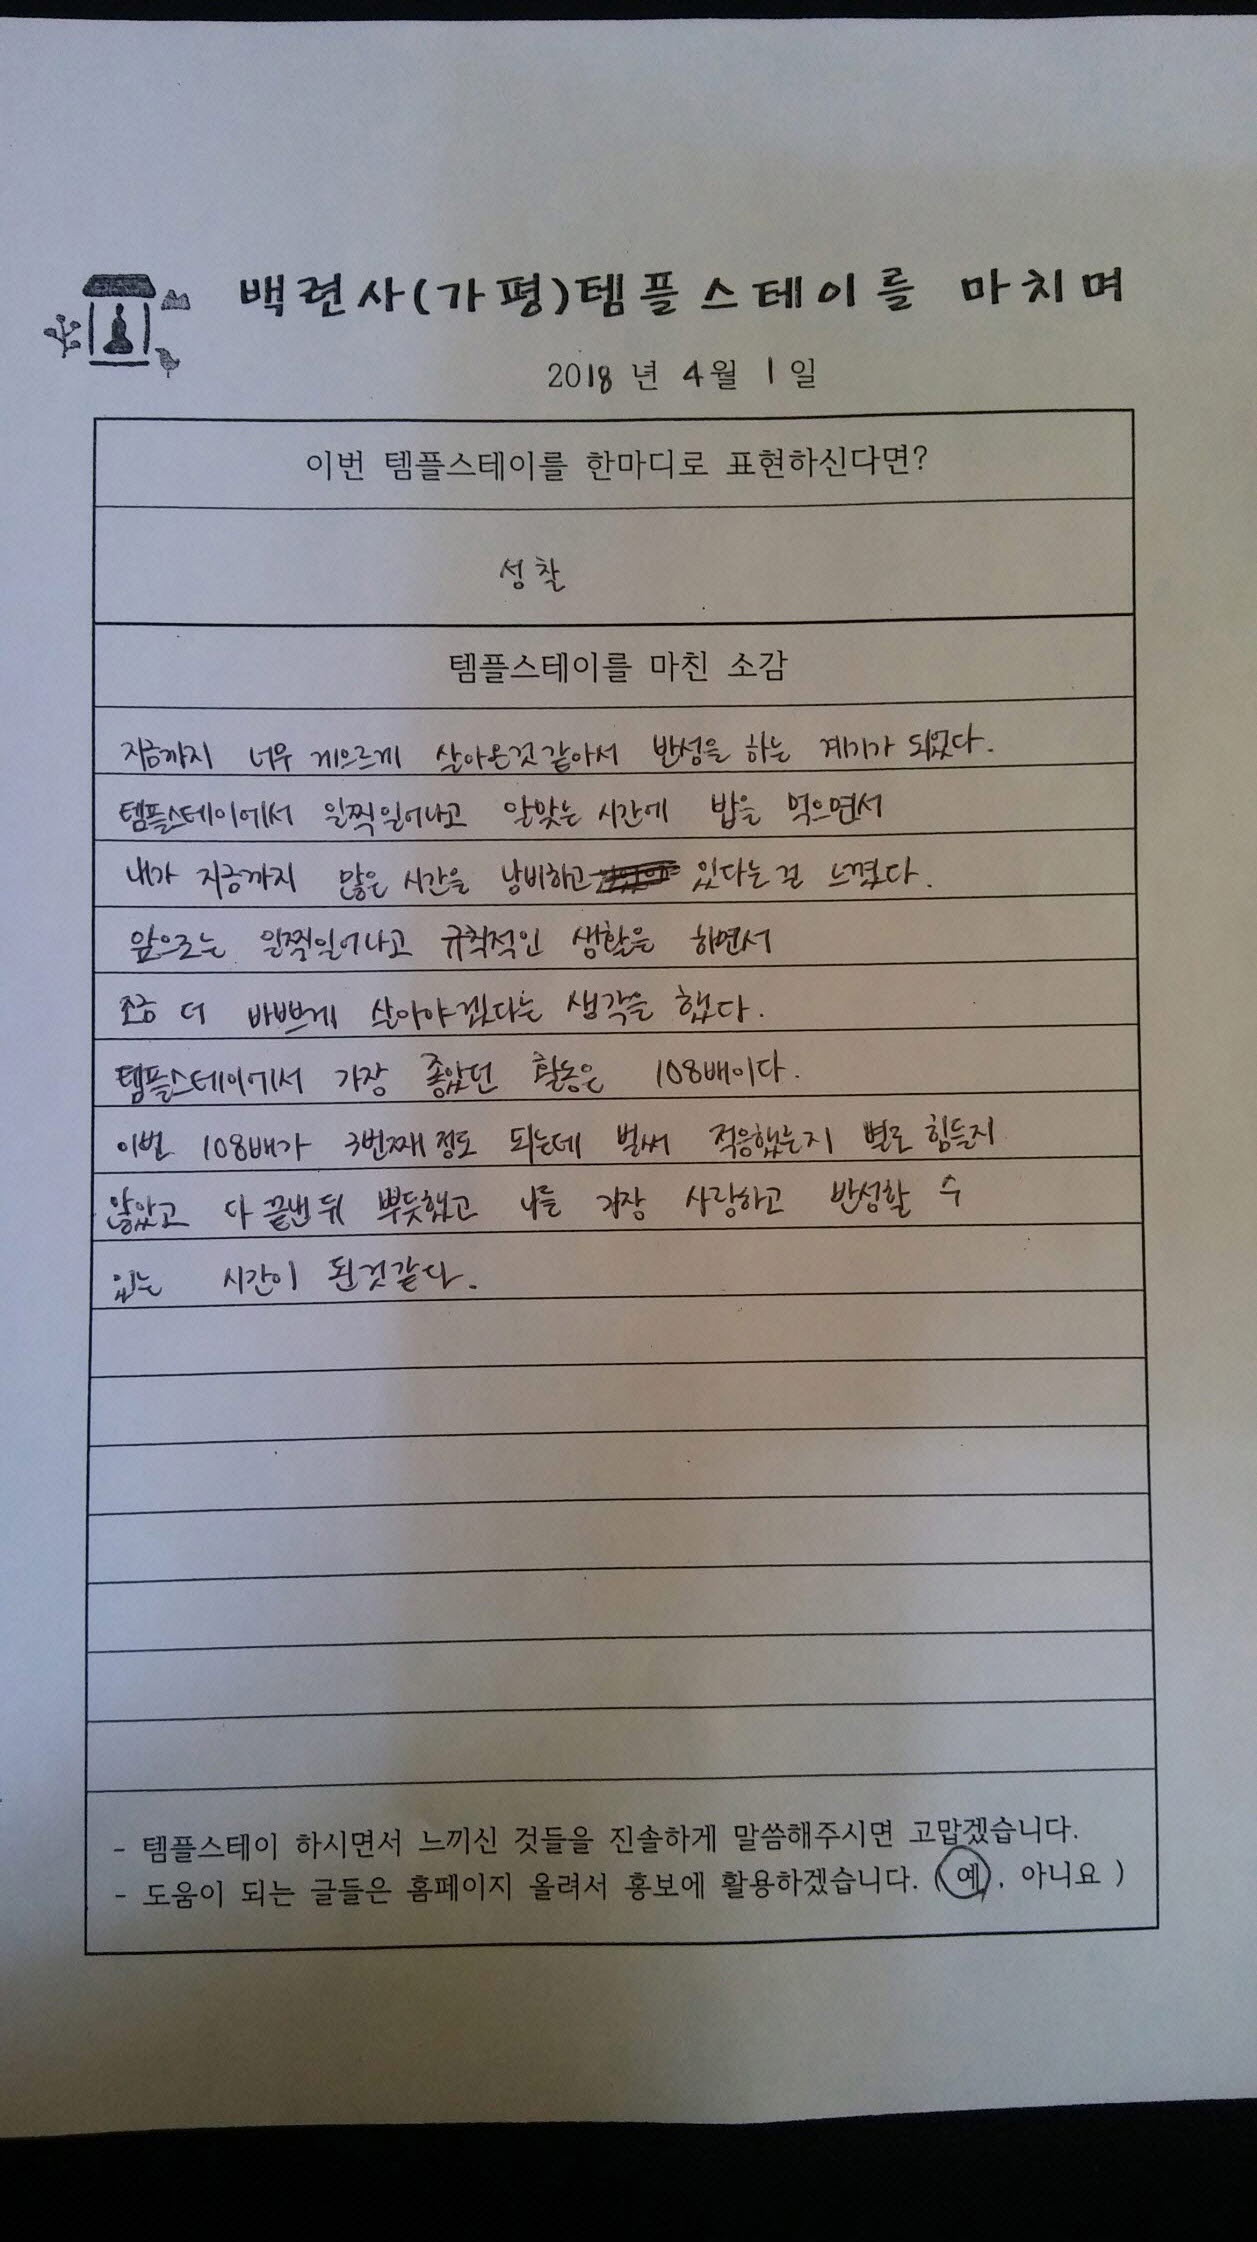 백련사(가평)템플스테이를 마치며
2018 년 4월 1일
이번 템플스테이를 한마디로 표현하신다면?
성찰
템플스테이를 마친 소감
지금까지 너무 게으르게 살아온것같아서 반성을 하는 계기가 되었다.
템플스테이에서 일찍일어나고 알맞는 시간에 밥을 먹으면서
내가 지금까지 많은 시간을 낭비하고 있다는걸 느꼈다.
앞으로는 일찍일어나고 규칙적인 생활을 하면서
조금 더 바쁘게 살아야겠다는 생각을 했다.
템플스테이에서 가장 좋았던 활동은 108배이다.
이번 108배가 3번째정도 되는데 벌써 적응했는지 별로 힘들지
않았고 다 끝낸뒤 뿌듯했고 나를 가장 사랑하고 반성할 수
있는 시간이 된것같다.
- 템플스테이 하시면서 느끼신 것들을 진솔하게 말씀해주시면 고맙겠습니다.
- 도움이 되는 글들은 홈페이지 올려서 홍보에 활용하겠습니다. (예, 아니요 )